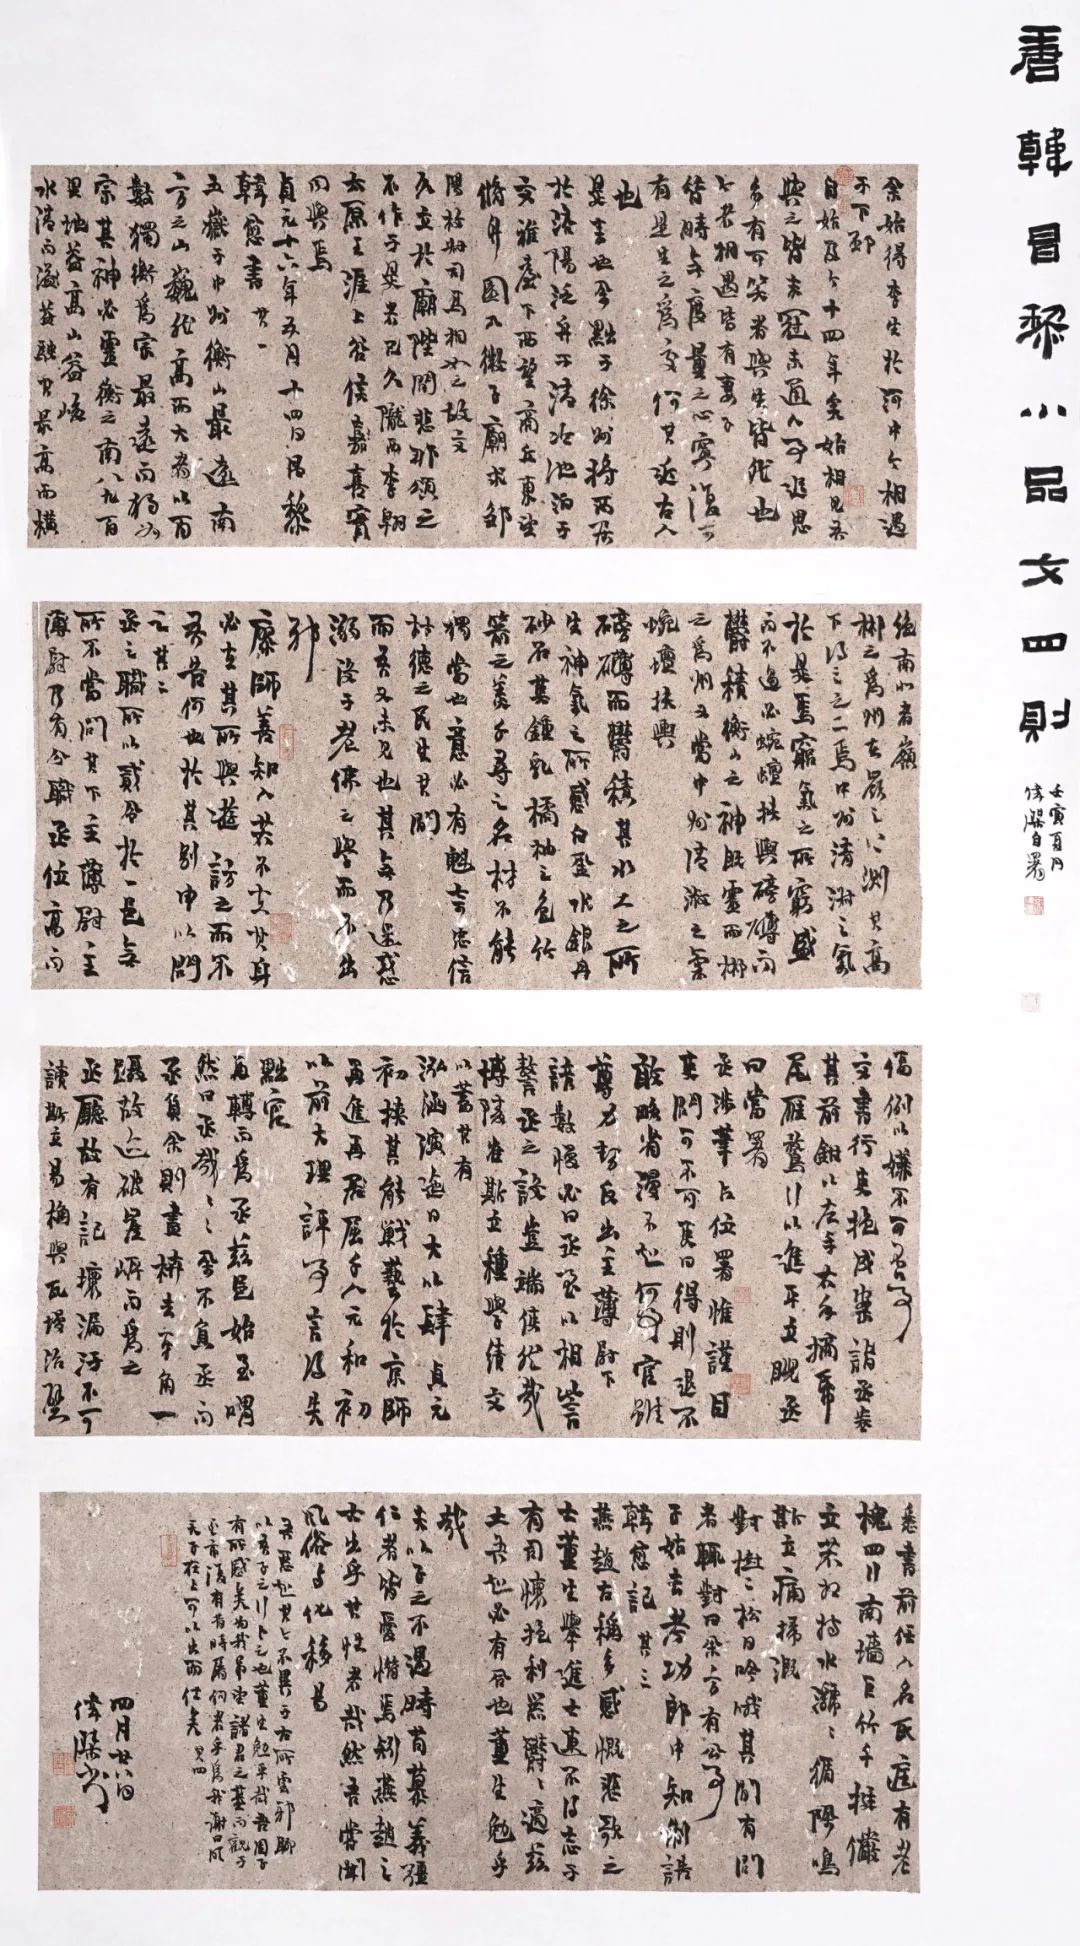 唐韓昌黎小品文四則
壬寅夏月
偉傑自署
余始得李生於河中今相遇
于下邳
自始及今十四年矣始相見吾
與之皆未冠未通人事追思
多有可笑者與生皆然也
今者相遇皆有妻子
昔時無度量之心寧復可
有是生之為交何其近古人
也
是來也余黜于徐州將西居
於洛陽泛舟于清泠池泊于
文雅臺下西望商丘東望
脩竹園入微子廟求鄒
陽枚叔司馬相如之故文
久立於廟陛間悲那頌之
不作于是者已久隴西李翱
太原王涯上谷侯喜實
同與焉
貞元十六年五月十四日昌黎
韓愈書 其一
五嶽于中州衡山最遠南
方之山巍然高而大者以百
數獨衡為宗最遠而獨為
宗其神必靈衡之南八九百
里地益高山益峻
水清而益駛其最高而橫
絕南北者嶺
郴之為州在嶺之上測其高
下得三之二焉中州清淑之氣
於是焉窮氣之所窮盛
而不過必蜿蟺扶輿磅礴而
鬱積衡山之神既靈而郴
之為州又當中州清淑之氣
蜿蟺扶輿
磅礴而鬱積其水土之所
生神氣之所感白金水銀丹
砂石英鍾乳橘柚之包竹
箭之美千尋之名材不能
獨當也意必有魁奇忠信
材德之民生其間
而吾又未見也其無乃迷惑
溺沒于老佛之學而不出
邪
廖師善知人若不在其身
必在其所與遊訪之而不
吾告何也於其別申以問
之其二
丞之職所以貳令於一邑無
所不當問其下主薄尉主
薄尉乃有分職丞位高而
偪例以嫌不可否事
文書行吏抱成案詣丞卷
其前鉗以左手右手摘紙
尾雁鶩行以進平立睨丞
曰當署
丞涉筆占位署惟謹目
吏問可不可吏曰得則退不
敢略省漫不知何事官雖
尊力勢反出主薄尉下
諺數慢必曰丞至以相訾
謷丞之設豈端使然哉
博陵崔斯立種學績文
以蓄其有
泓涵演迤日大以肆貞元
初挾其能戰藝於京師
再進再屈千人元和初
以前大理評事言得失
黜官
再轉而為丞茲邑始至喟
然曰丞哉丞哉余不負丞而
丞負余則盡枿去牙角一
躡故迹破崖岸而為之
丞廳故有記壞漏汙不可
讀斯立易桷與瓦墁治壁
悉書前任人名氏庭有老
槐四行南墻巨竹千挺儼
立若相持水㶁㶁循除鳴
斯立痛掃溉
對樹二松日吟哦其間有問
者輒對曰余方有公事
子姑去考功郎中知制誥
韓愈記 其三
燕趙古稱多感慨悲歌之
士董生舉進士連不得志于
有司懷抱利器鬱鬱適茲
土吾知必有合也董生勉乎
哉
夫以子之不遇時苟慕義彊
仁者皆愛惜焉矧燕趙之
士出乎其性者哉然吾嘗聞
風俗與化移易
吾惡知其今不異于古所云邪聊
以吾子之行卜之也董生勉乎哉吾因子
有所感矣為我弔望諸君之墓而觀于
其市復有昔時屠狗者乎為我謝曰明
天子在上可以出而仕矣其四
四月廿八日
偉傑書